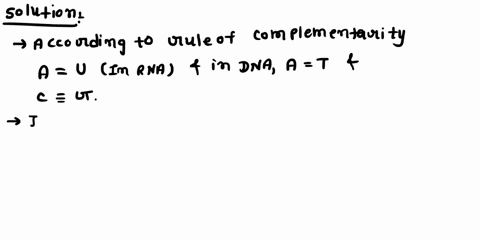 Solution:
→ According to rule of complementarity
A = U (In RNA) & in DNA, A = T &
C ≡ G.
→ I